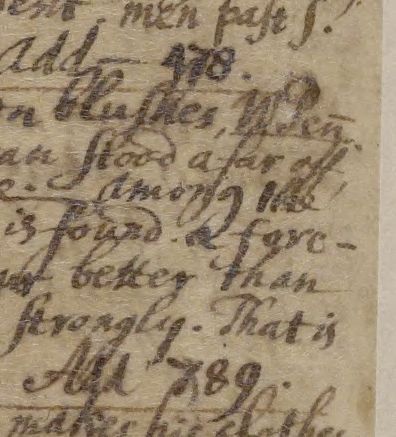 sent. men past S.
Add — 478.
on blushes, When
an stood afar off,
e. among the
is found a fore-
ur better than
strongly. That is
Add 789.
makes his clothes